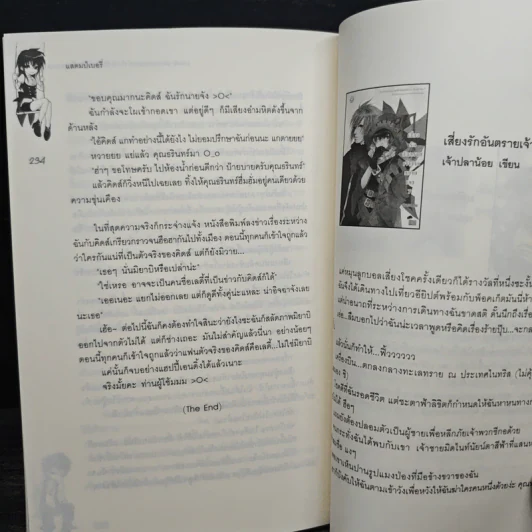 แสตมป์เบอรี่
"ขอบคุณมากนะคิดส์ ฉันรักนายจัง >O<"
ฉันกำลังจะโผเข้ากอดเขา แต่อยู่ดีๆ ก็มีเสียงอำมหิตดังขึ้นจาก
ด้านหลัง
"ไอ้คิดส์ แกทำอย่างนี้ได้ยังไง ไม่ยอมปรึกษาฉันก่อนนะ แกตายยย"
หวายยย แย่แล้ว คุณอรินทร์มา O_o
"ฮ่าๆ ขอโทษครับ ไปห้องน้ำก่อนดีกว่า บ้ายบายครับคุณอรินทร์"
แล้วคิดส์ก็วิ่งหนีไปเฉยเลย ทิ้งให้คุณอรินทร์ฮึ่มฮั่มอยู่คนเดียวด้วย
ความขุ่นเคือง
234
ในที่สุดความจริงก็กระจ่างแจ้ง หนังสือพิมพ์ลงข่าวเรื่องระหว่าง
ฉันกับคิดส์เกรียวกราวจนฮือฮากันไปทั้งเมือง ตอนนี้ทุกคนก็เข้าใจถูกแล้ว
ว่าใครกันแน่ที่เป็นตัวจริงของคิดส์ แต่ก็ยังมิวาย...
"เธอๆ นั่นมิยาบิหรือเปล่าน่ะ"
"ใช่เหรอ อาจจะเป็นคนชื่อเลดี้ที่เป็นข่าวกับคิดส์ก็ได้"
"เออเนอะ แยกไม่ออกเลย แต่ก็ดูดีทั้งคู่น่ะแหละ น่าอิจฉาจังเลย
นะเธอ"
เฮ้อ~ ต่อไปนี้ฉันก็คงต้องทำใจสินะว่ายังไงซะฉันก็สลัดภาพมิยาบิ
ออกไปจากตัวไม่ได้ แต่ก็ช่างเถอะ มันไม่สำคัญแล้วนี่นา อย่างน้อยๆ
ตอนนี้ทุกคนก็เข้าใจถูกแล้วว่าแฟนตัวจริงของคิดส์คือเลดี้...ไม่ใช่มิยาบิ
แค่นั้นก็จบอย่างแฮปปี้เอนดิ้งได้แล้วเนาะ
จริงมั้ยคะ ท่านผู้ใช้มมม >O<
(The End)
เสี่ยงรักอันตรายเจ้า
เจ้าปลาน้อย เขียน
แค่หมุนลูกบอลเสี่ยงโชคครั้งเดียวก็ได้รางวัลที่หนึ่งซะงั้น
ฉันจึงได้เดินทางไปเที่ยวอียิปต์พร้อมกับ
แล้วฉันก็ทำให้...ฟิ้ววววววว
ตกลงกลางทะเลทราย ณ ประเทศ